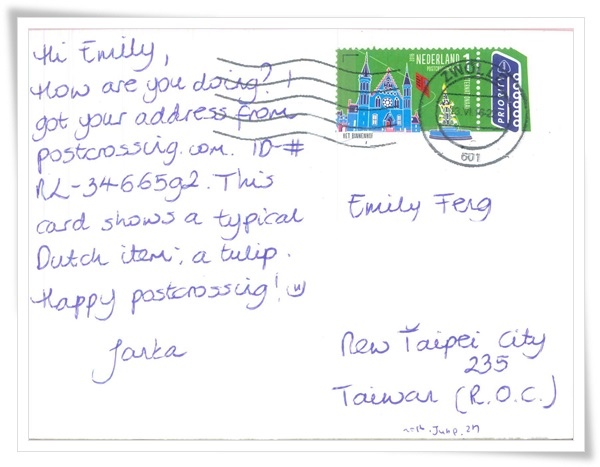 Hi Emily,
How are you doing? I
got your address from
postcrossing.com. ID-#
NL-3466592. This
card shows a typical
Dutch item; a tulip.
Happy postcrossing!
Jarka
NEDERLAND 1
ZWOLLE
601
PRIORITY
HET BINNENHOF
Emily Feng
New Taipei City
235
Taiwan (R.O.C.)